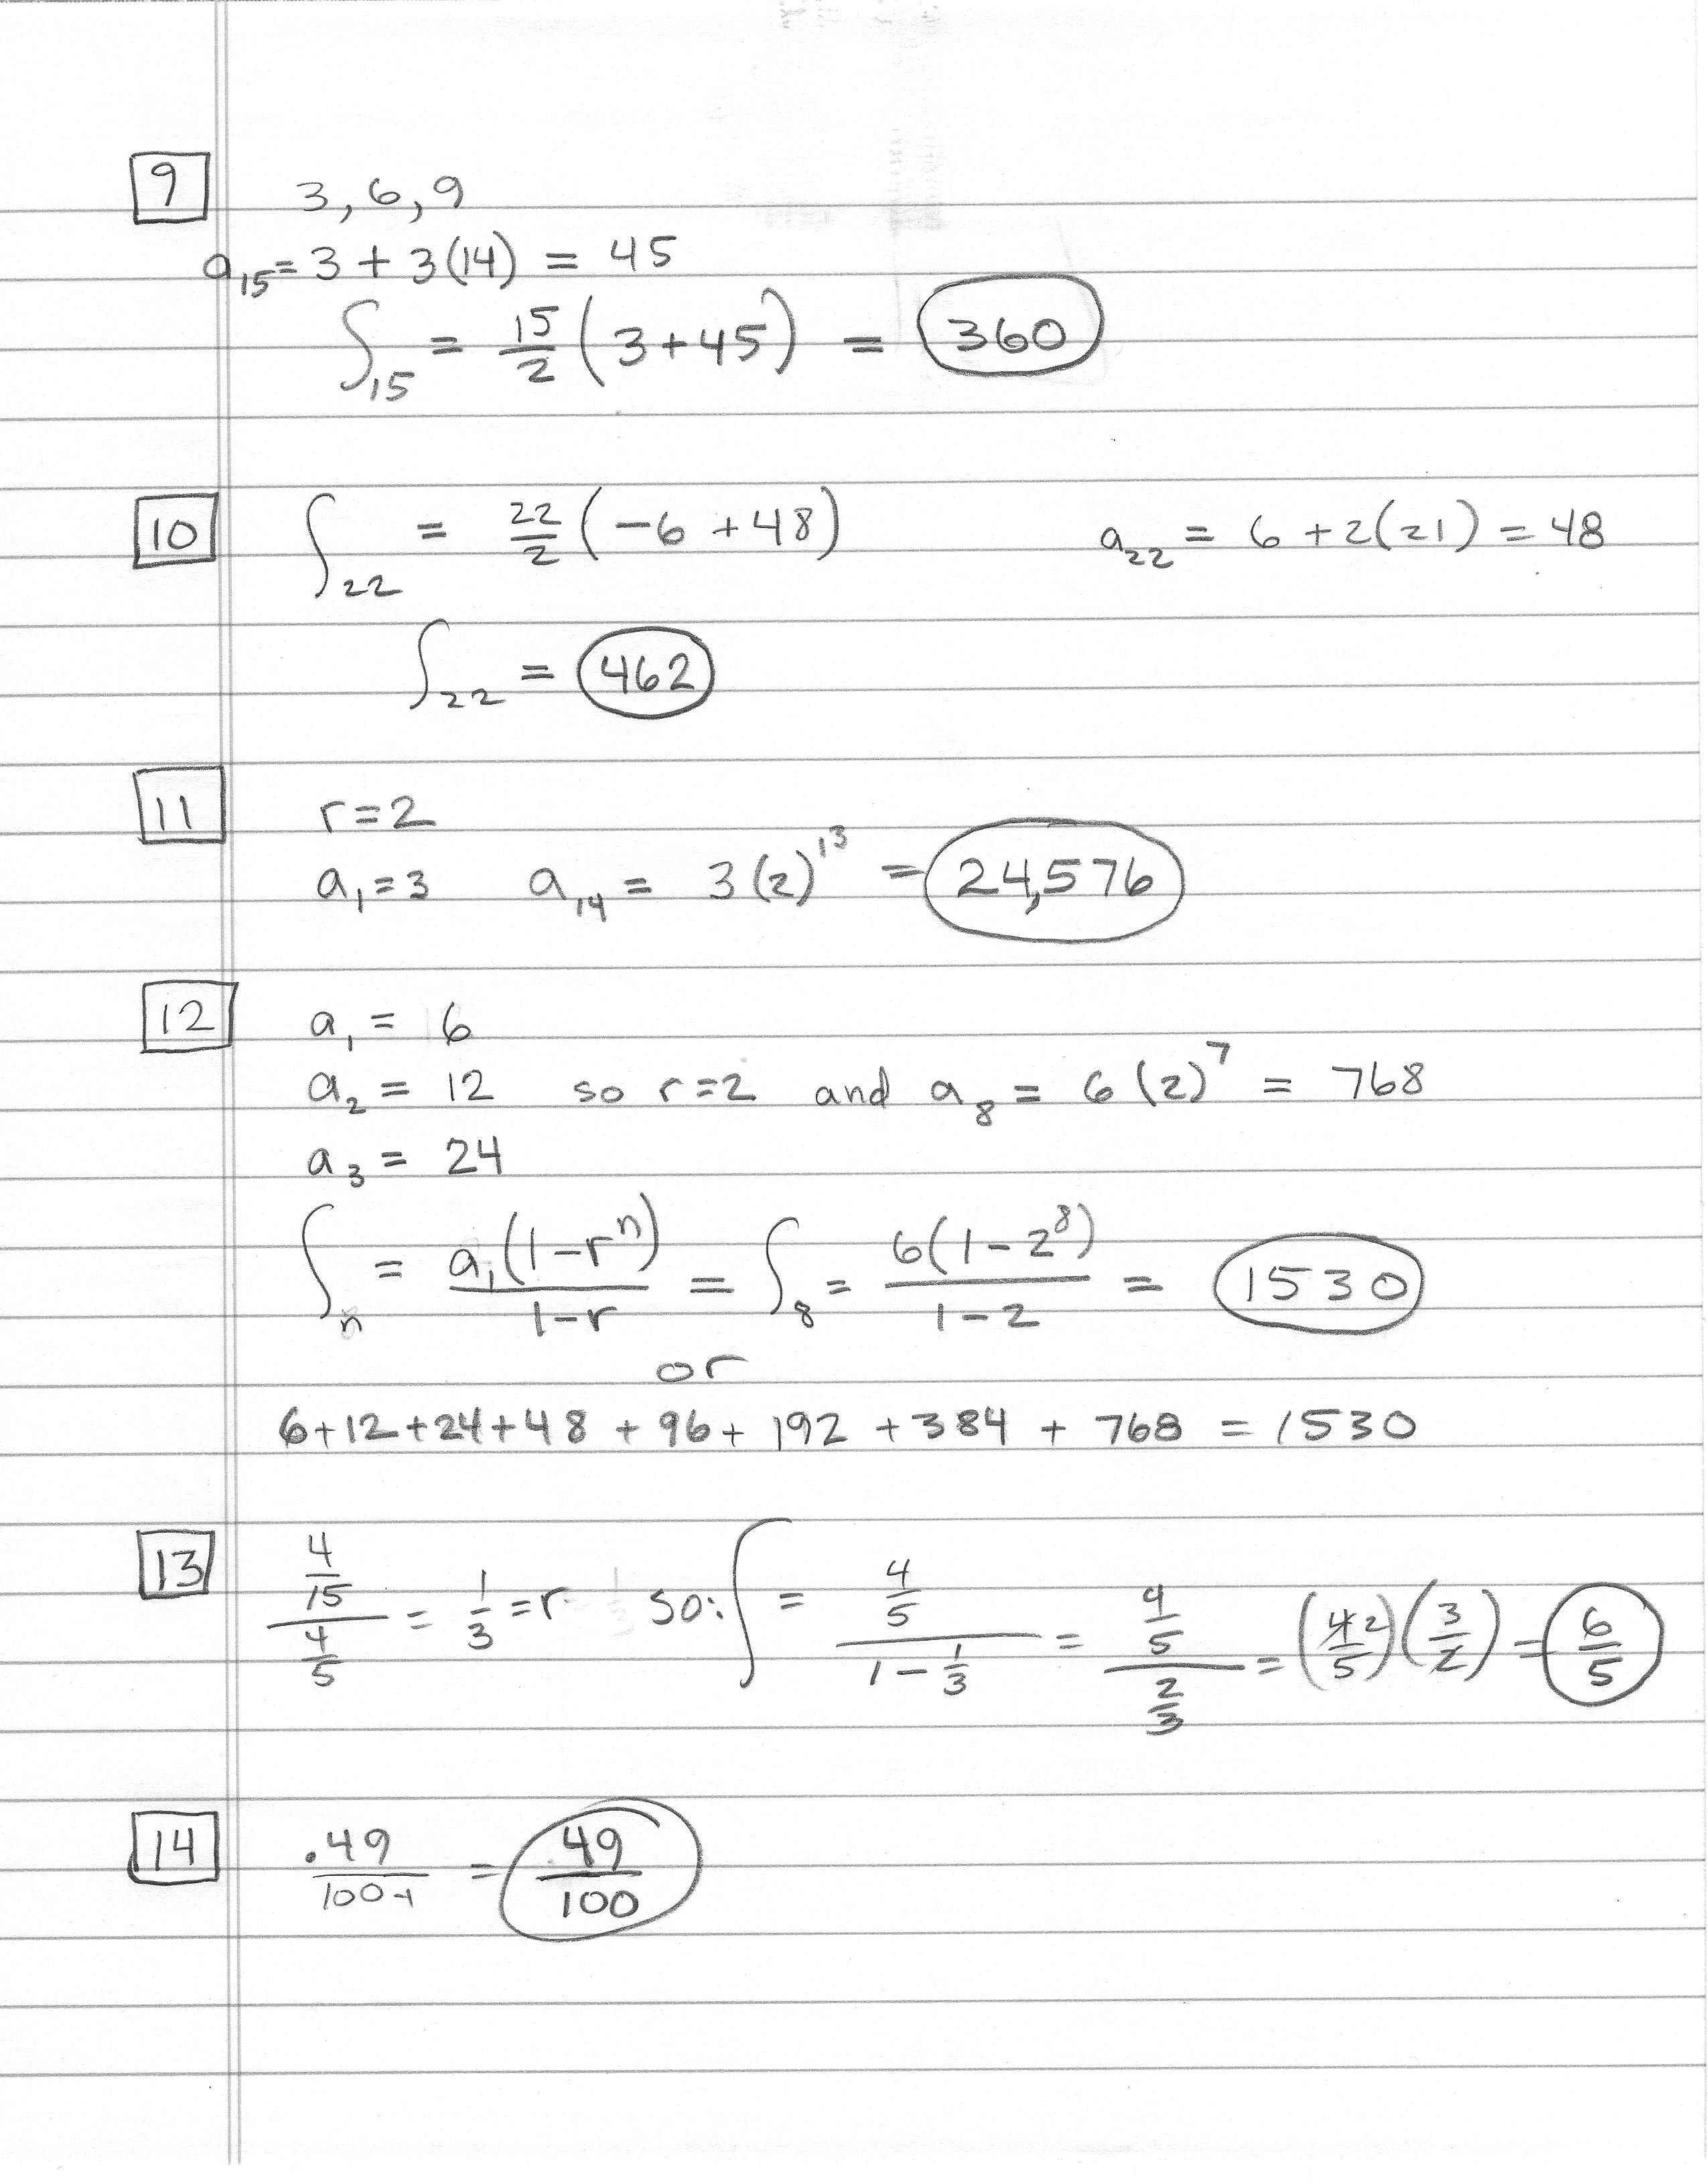 9
3, 6, 9
a₁₅ = 3 + 3(14) = 45
S₁₅ = 15/2 (3+45) = 360
10
S₂₂ = 22/2 (-6 + 48)    a₂₂ = 6 + 2(21) = 48
S₂₂ = 462
11
r = 2
a₁ = 3    a₁₄ = 3(2)¹³ = 24,576
12
a₁ = 6
a₂ = 12    so r = 2 and a₈ = 6(2)⁷ = 768
a₃ = 24
Sₙ = a₁(1-rⁿ)/(1-r) = S₈ = 6(1-2⁸)/(1-2) = 1530
or
6+12+24+48+96+192+384+768 = 1530
13
(4/15)/(4/5) = 1/3 = r    so: S = (4/5)/(1-1/3) = (4/5)/(2/3) = (4 2/5)(3/2) = 6/5
14
.49/(100-1) = 49/100